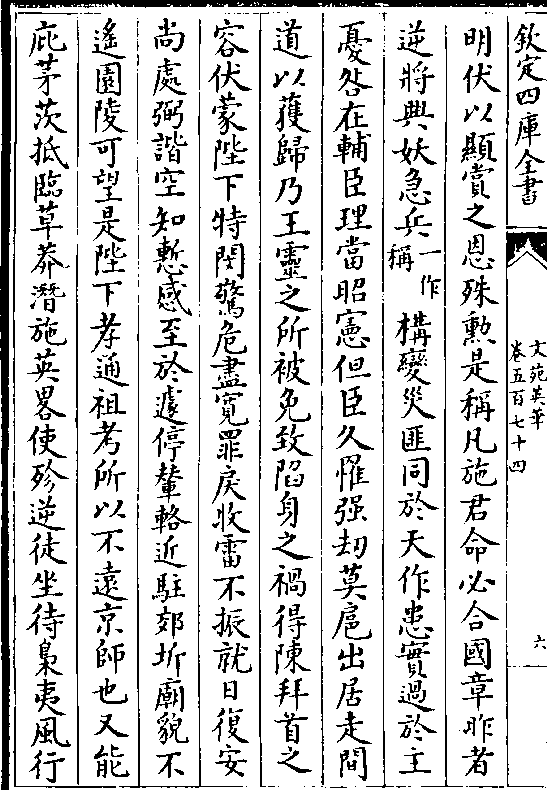 欽定四庫全書
文苑英華
卷五百七十四
六
明伏以顯賞之恩殊勲是稱凡施君命必合國章昨者
逆將興妖急兵一作稱構變災匪同於天作患實過於主
憂咎在輔臣理當昭憲但臣久罹强刼莫扈出居走間
道以獲歸乃王靈之所被免致陷身之禍得陳拜首之
容伏蒙陛下特閔驚危盡寛罪戾收雷不振就日復安
尚處弼諧空知慙感至於遽停輦輅近駐郊圻廟貌不
遙園陵可望是陛下孝通祖考所以不遠京師也又能
庇茅茨抵臨草莽潛施英畧使殄逆徒坐待梟夷風行